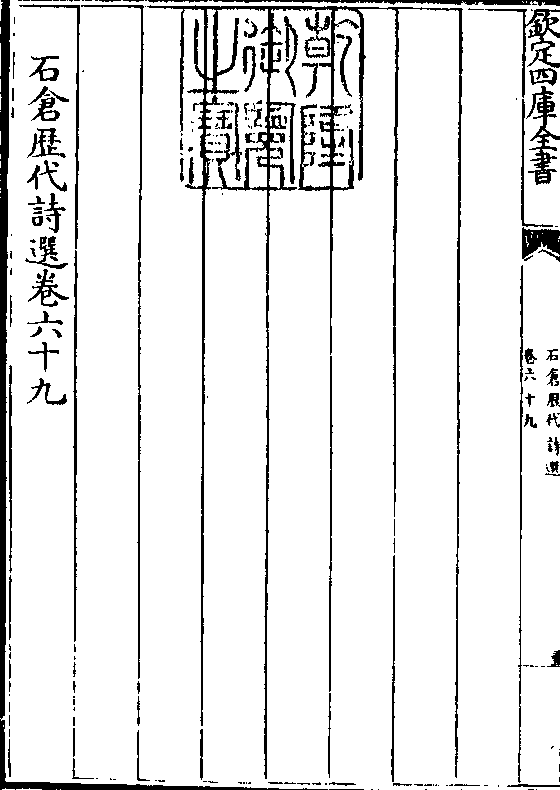 欽定四庫全書
石倉歷代詩選
卷六十九
乾隆御覽之寶
石倉歷代詩選卷六十九